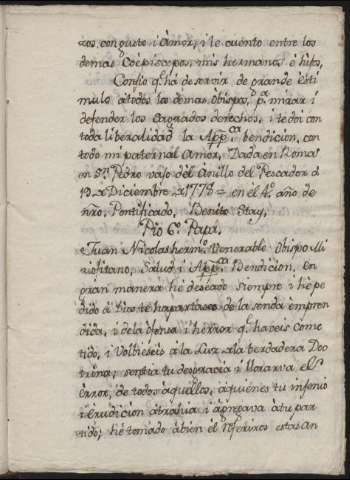 zos, con gusto i Amor, i te cuento entre los
demas Coepiscopos, mis hermanos è hijos,
Confio q.e há de servir de grande Estí
mulo a todos los demas Obispos, p.a mirar i
defender los Sagrados derechos, i te doi con
toda liberalidad la App.ca bendicion, con
todo mi paternal Amor. Dada en Roma
en Sn. Pedro vajo del Anillo del Pescador á
13 de Diciembre de 1778 = en el 4º. año de
ñro. Pontificado. Benito Stay.
Pio 6º. Papa.
Juan Nicolas herm.o Venerable Obispo Mi
riofitano, Salud i App.ca Bendicion. En
gran manera hé deseado siempre i hé pe
dido á Dios te hapartases de la senda empren
dida, i de la ofensa i herror q.e haveis come
tido, i volvieseis á la Luz de la berdadera Doc
trina; sentia tu desgracia i llorava el
Error, de todos aquellos, aquienes tu injenio
i Erudicion atrahia i apegava átu par
tido; hé tomado abien el Referiros estas an